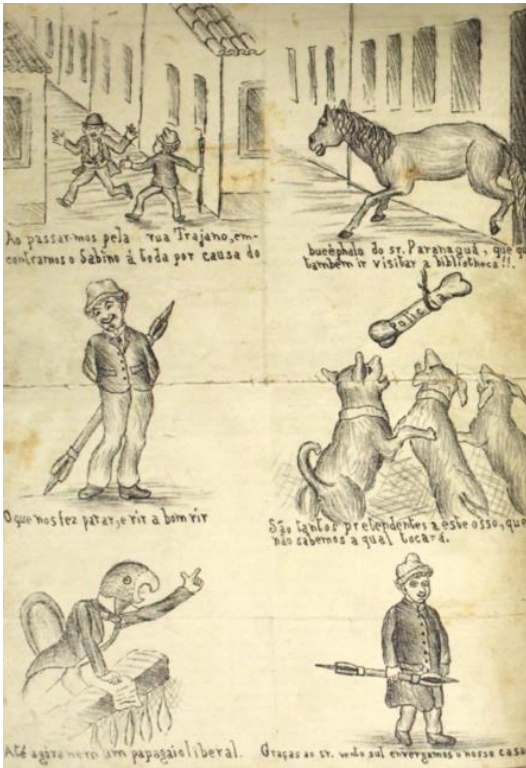 Ao passarmos pela rua Trajano, em-
contramos o Sabino á toda por causa do
bucéphalo do sr. Paranaguá, que
tambem ir visitar a bibliotheca!!.
O que nos fez parar, e rir a bom rir
POLIC
São tantos pretendentes a este osso, que
não sabemos a qual tocará.
Até agora nem um papagaio liberal.
Graças ao sr. vento sul envergamos o nosso